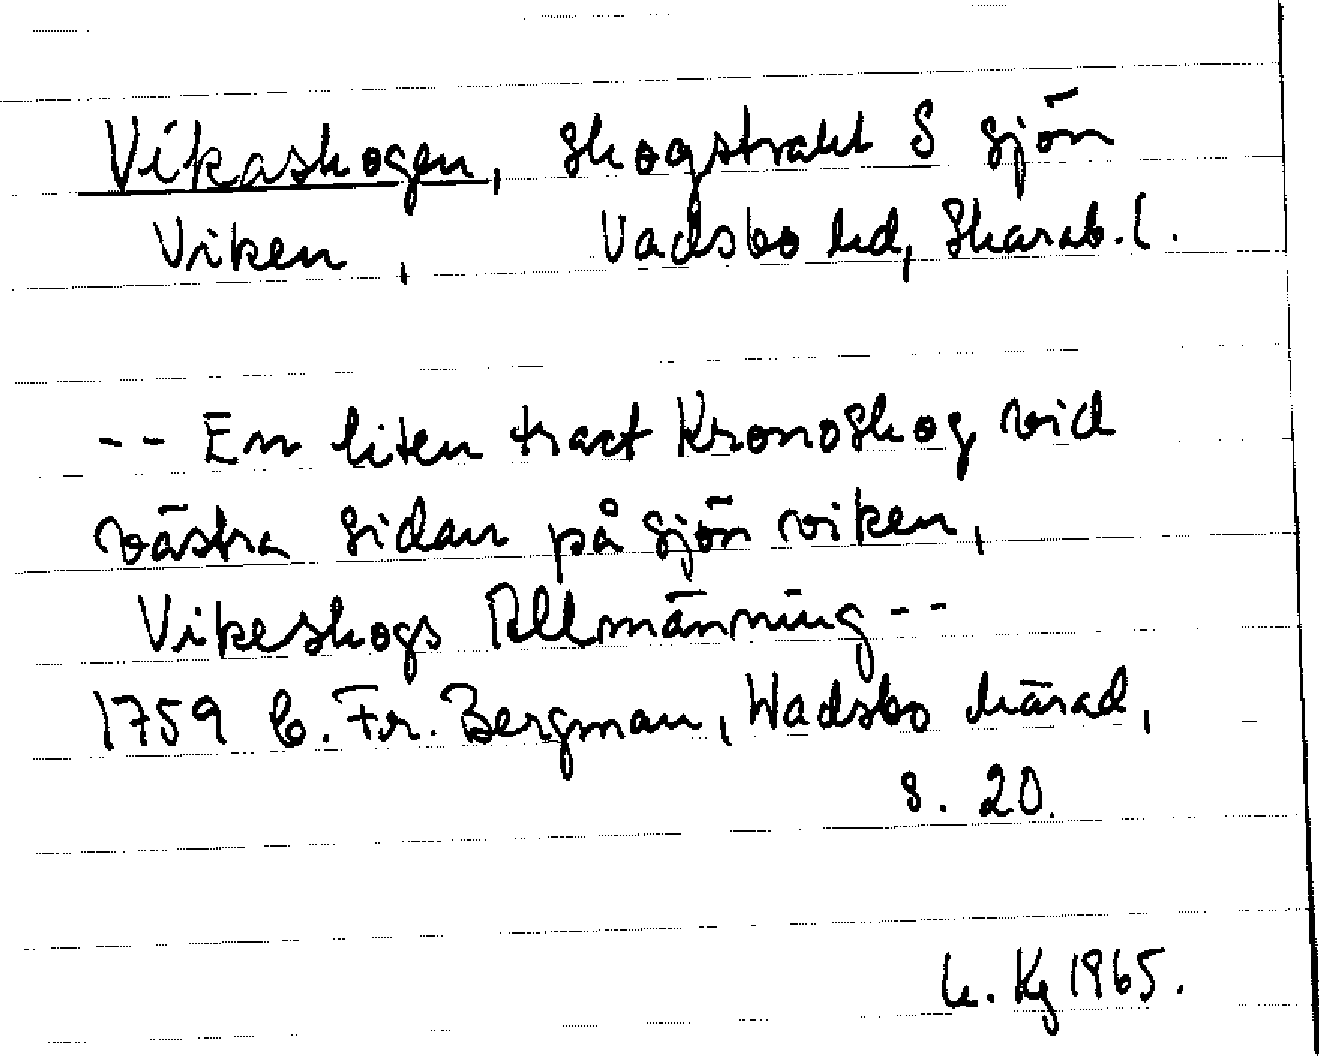 Vikaskogen, skogstrakt S sjön
Viken, Vadsbo hd, Skarab. l.
-- En liten tract Kronoskog vid
västra sidan på sjön viken,
Vikeskogs Allmänning --
1759 C. Fr. Bergman, Wadsbo härad,
s. 20.
Kg 1965.